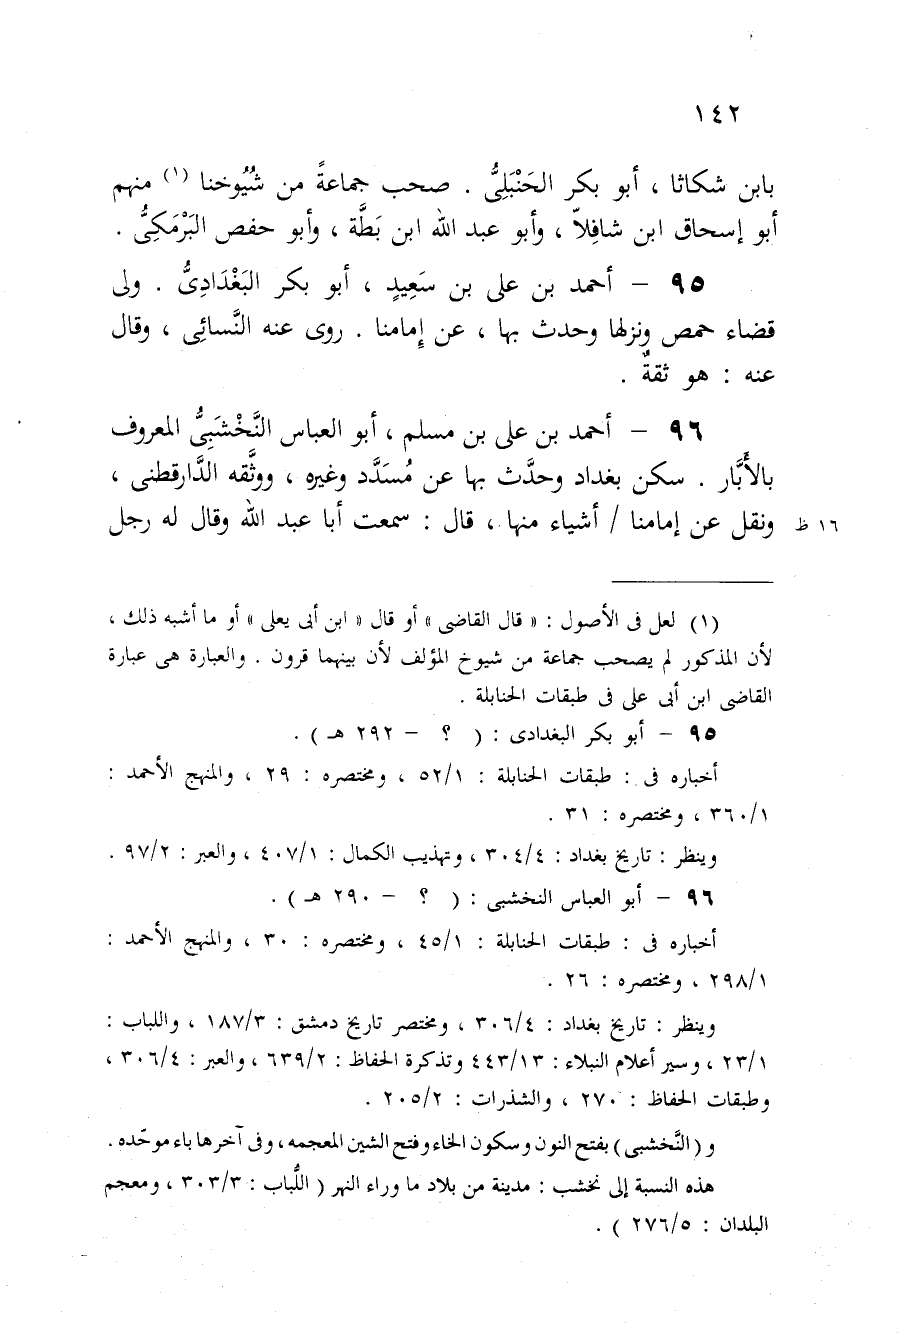 ١٤٢
بابن شكاثا ، أبو بكر الحَنْبَلِىُّ . صحب جماعةً من شُيُوخنا (١) منهم
أبو إسحاق ابن شافِلاّ ، وأبو عبد الله ابن بَطَّة ، وأبو حفص البَرْمَكِىُّ .
٩٥ – أحمد بن على بن سَعِيدٍ ، أبو بكر البَغْدَادِىُّ . ولى
قضاء حمص ونزلها وحدث بها ، عن إمامنا . روى عنه النَّسائى ، وقال
عنه : هو ثقةٌ .
٩٦ – أحمد بن على بن مسلم ، أبو العباس النَّخْشَبِىُّ المعروف
بالأبَّار . سكن بغداد وحدَّث بها عن مُسَدَّد وغيره ، ووثَّقه الدَّارقطنى ،
١٦ ظ ونقل عن إمامنا / أشياء منها ، قال : سمعت أبا عبد الله وقال له رجل
(١) لعل فى الأصول : « قال القاضى » أو قال « ابن أبى يعلى » أو ما أشبه ذلك ،
لأن المذكور لم يصحب جماعة من شيوخ المؤلف لأن بينهما قرون . والعبارة هى عبارة
القاضى ابن أبى على فى طبقات الحنابلة .
٩٥ – أبو بكر البغدادى : ( ؟ – ٢٩٢ هـ ) .
أخباره فى : طبقات الحنابلة : ٥٢/١ ، ومختصره : ٢٩ ، والمنهج الأحمد :
٣٦٠/١ ، ومختصره : ٣١ .
وينظر : تاريخ بغداد : ٣٠٤/٤ ، وتهذيب الكمال : ٤٠٧/١ ، والعبر : ٩٧/٢ .
٩٦ – أبو العباس النخشبى : ( ؟ – ٢٩٠ هـ ) .
أخباره فى : طبقات الحنابلة : ٤٥/١ ، ومختصره : ٣٠ ، والمنهج الأحمد :
٢٩٨/١ ، ومختصره : ٢٦ .
وينظر : تاريخ بغداد : ٣٠٦/٤ ، ومختصر تاريخ دمشق : ١٨٧/٣ ، واللباب :
٢٣/١ ، وسير أعلام النبلاء : ٤٤٣/١٣ وتذكرة الحفاظ : ٦٣٩/٢ ، والعبر : ٣٠٦/٤ ،
وطبقات الحفاظ : ٢٧٠ ، والشذرات : ٢٠٥/٢ .
و ( النَّخشبى ) بفتح النون وسكون الخاء وفتح الشين المعجمه ، وفى آخرها باء موحّده .
هذه النسبة إلى نخشب : مدينة من بلاد ما وراء النهر ( اللُّباب : ٣٠٣/٣ ، ومعجم
البلدان : ٢٧٦/٥ ) .